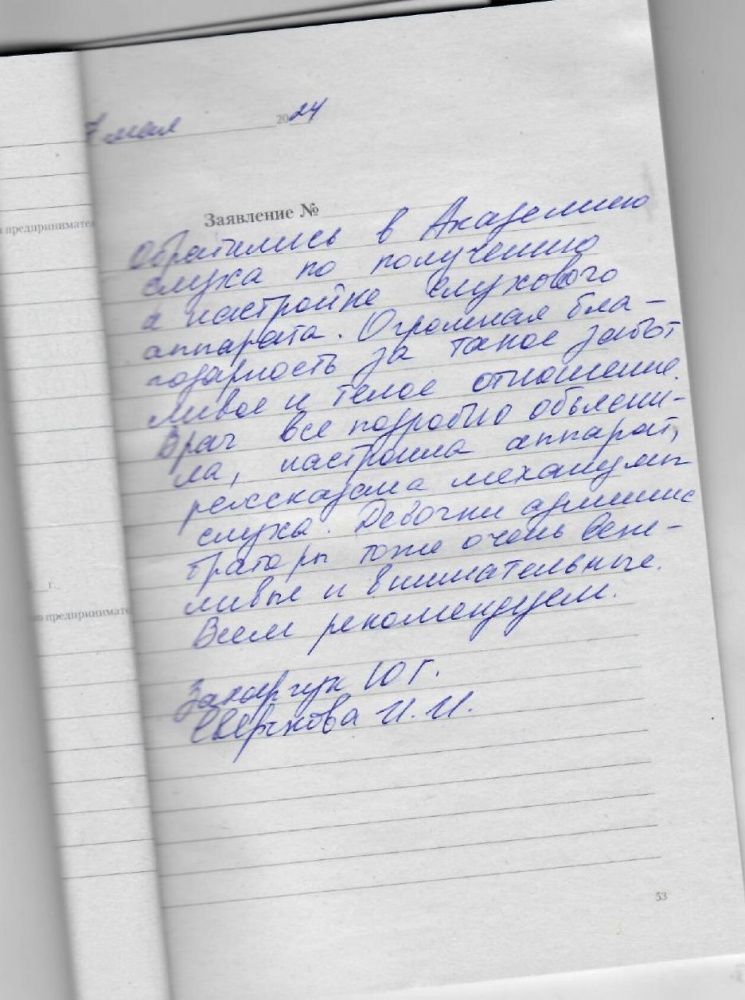 7 мая 2024
Заявление №
Обратились в Академию
слуха по получению
и настройке слухового
аппарата. Огромная бла-
годарность за такое забот
ливое и теплое отношение.
Врач все подробно объясни-
ла, настроила аппарат,
рассказала механизмы
слуха. Девочки админис
траторы тоже очень веж-
ливые и внимательные.
Всем рекомендуем.
Захарчук Ю Г.
Сверчкова И. И.
предпринимате
г.
предпринимате
53